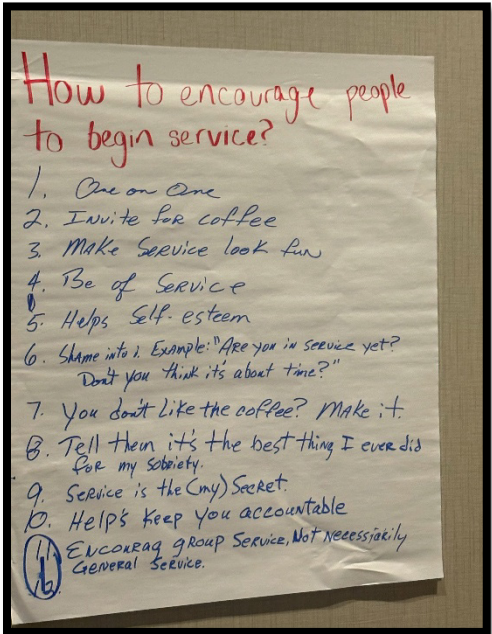 How to encourage people
to begin service?
1. One on One
2. Invite for coffee
3. Make Service look fun
4. Be of Service
5. Helps Self-esteem
6. Shame into i. Example: "Are you in service yet?
Don't you think it's about time?"
7. You don't Like the coffee? Make it.
8. Tell them it's the best thing I ever did
for my sobriety.
9. Service is the (my) Secret.
10. Help's Keep you accountable
11. Encourag group Service, Not necessiarily
General Service.
12.